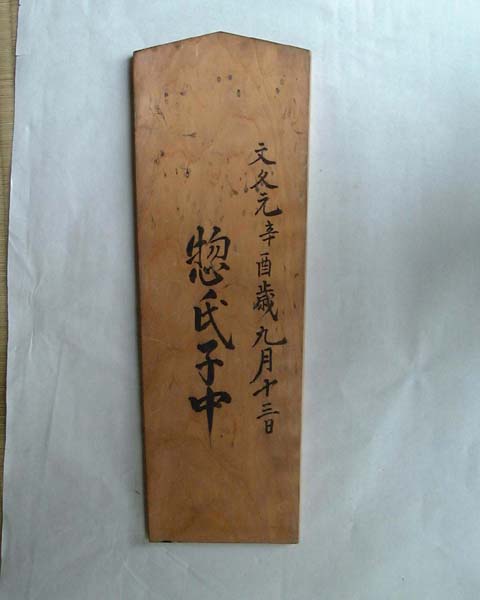 文久元辛酉歳九月十三日
惣氏子中